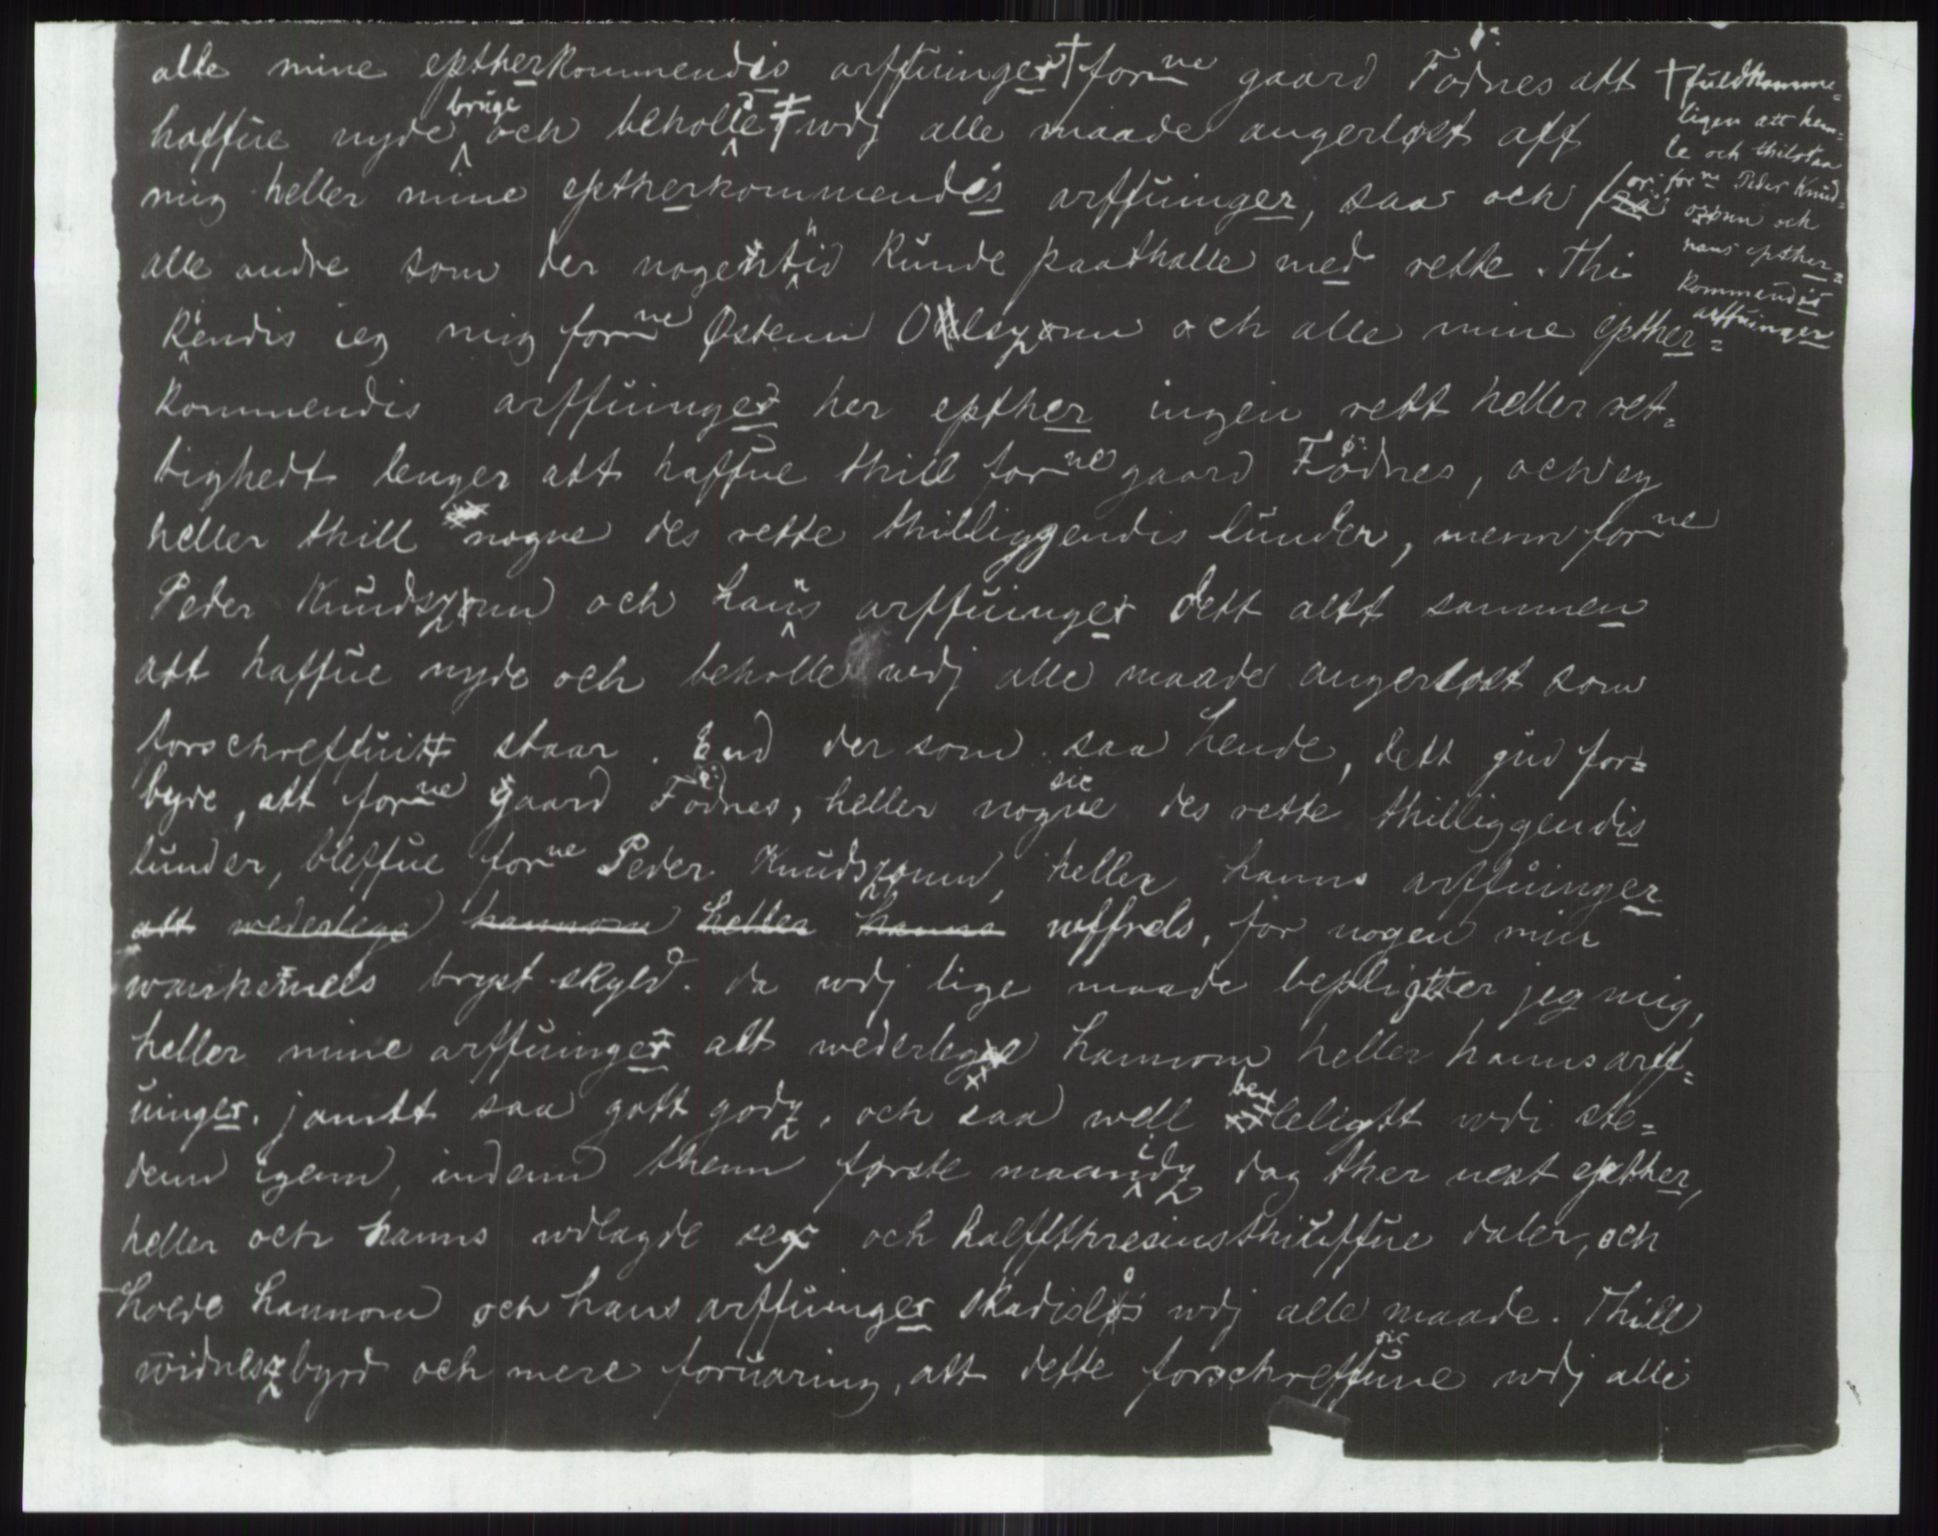 alle mine eptherkommendis arffuinger † forne gaard Födnes att
haffue nyde bruge och beholle ‡ wdj alle maade angerløst aff
mig heller mine eptherkommendis arffuinger, saa och for
alle andre som der nogen tid kunde paathalle med rette. Thi
kendis ieg mig forne Østenn Olszonn och alle mine epther=
kommendis arffuinger her epther ingen rett heller ret=
tighedt lenger att haffue thill forne gaard Födnes, och ey
heller thill nogne des rette thilliggendis lunder, menn forne
Peder Knudszonn och hans arffuinger dett altt sammen
att haffue nyde och beholle wdj alle maade angerløst som
forschreffuitt staar. End der som saa hende, dett gud for=
byde, att forne gaard Födnes, heller nogne sic des rette thilliggendis
lunder, bleffue forne Peder Knudszonn, heller hanns arffuinger
att wederlege hannom heller hanns wffrels, for nogen min
wankenels bryst skyld. da wdj lige maade beplitter jeg mig,
heller mine arffuinger att wederlege hannom heller hanns arff=
uinger. jamtt saa gott godz, och saa well beleligtt wdi ste=
denn igenn, indenn thenn første maanidz dag ther nest epther,
heller och hanns wdlagde sex och halfftthresinsthiuffue daler, och
holde hannom och hans arffuinger skadisløs wdj alle maade. Thill
widneszbyrd och mere foruaring, att dette forschreffune sic wdj alle
† fuldkomme=
ligen att hem=
le och thilstaa
forne Peder Knud=
szonn och
hans epther=
kommendis
arffuinger